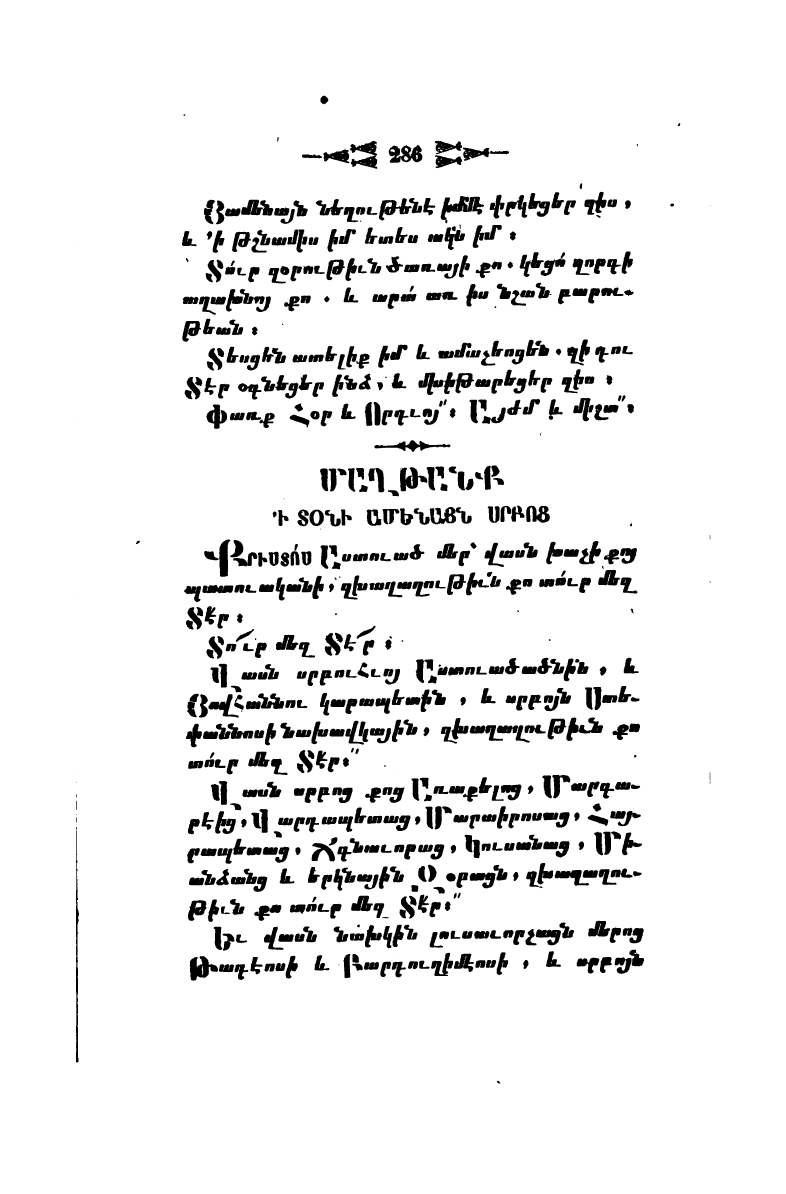 286
Յամենայն նեղութենէ իմմէ փրկեցեր զիս,
և ՚ի թշնամիս իմ ետես ակն իմ։
Տո՛ւր զօրութիւն ծառայի քո. կեցո՛ զորդի
աղախնոյ քո. և արա՛ առ իս նշան բարու-
թեան։
Տեսցեն ատելիք իմ և ամաչեսցեն. զի դու
Տէր օգնեցեր ինձ, և մխիթարեցեր զիս։
Փառք Հօր և Որդւոյ՟։ Այժմ և միշտ՟։
ՄԱՂԹԱՆՔ
՚Ի ՏՕՆԻ ԱՄԵՆԱՅՆ ՍՐԲՈՑ
ՔՐԻՍՏՈՍ Աստուած մեր՝ վասն խաչի քոյ
պատուականի, զխաղաղութիւն քո տո՛ւր մեզ
Տէր։
Տո՜ւր մեզ Տէ՜ր։
Վասն սրբուհւոյ Աստուածածնին, և
Յովհաննու կարապետին, և սրբոյն Ստե-
փաննոսի նախավկային, զխաղաղութիւն քո
տո՛ւր մեզ Տէր։՟
Վասն սրբոց քոց Առաքելոց, Մարգա-
րէից, Վարդապետաց, Մարտիրոսաց, Հայ-
րապետաց, Ճգնաւորաց, Կուսանաց, Մի-
անձանց և երկնային Զօրացն, զխաղաղու-
թիւն քո տո՛ւր մեզ Տէր։՟
Եւ վասն նախկին լուսաւորչացն մերոց
Թադէոսի և Բարդուղիմէոսի, և սրբոյն